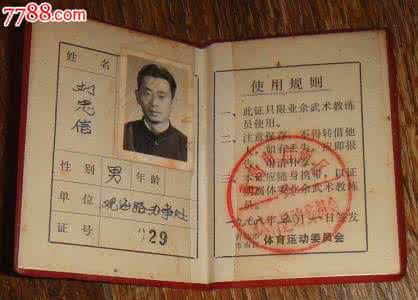 7788.com
姓名
性别 男 年龄
单位 办事处
证号 29
使用规则
一、此证只限业余武术教练
员使用。
二、注意保存,不得转借他
人,如有丢失,应即报
告,申请补发。
三、本证应随身携带,以证
明属体委业余武术教练
员。
一九八年 月一日签发
体育运动委员会